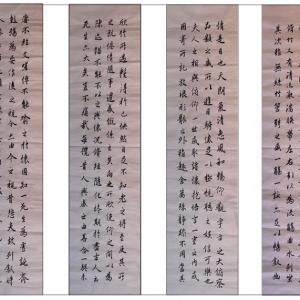 修竹又有清流激湍映帶左右引以為流觴曲水列坐
其次雖無絲竹管弦之盛一觴一詠亦足以暢敘幽
情是日也天朗氣清惠風和暢仰觀宇宙之大俯察
品類之盛所以遊目騁懷足以極視聽之娛信可樂也
夫人之相與俯仰一世或取諸懷抱悟言一室之內或
因寄所託放浪形骸之外雖趣舍萬殊靜躁不同當其
欣於所遇暫得於己快然自足不知老之將至及其所
之既倦情隨事遷感慨係之矣向之所欣俛仰之間以為
陳迹猶不能不以之興懷況脩短隨化終期於盡古人云
死生亦大矣豈不痛哉每攬昔人興感之由若合一契未
嘗不臨文嗟悼不能喻之於懷固知一死生為虛誕齊
彭殤為妄作後之視今亦由今之視昔悲夫故列敘時